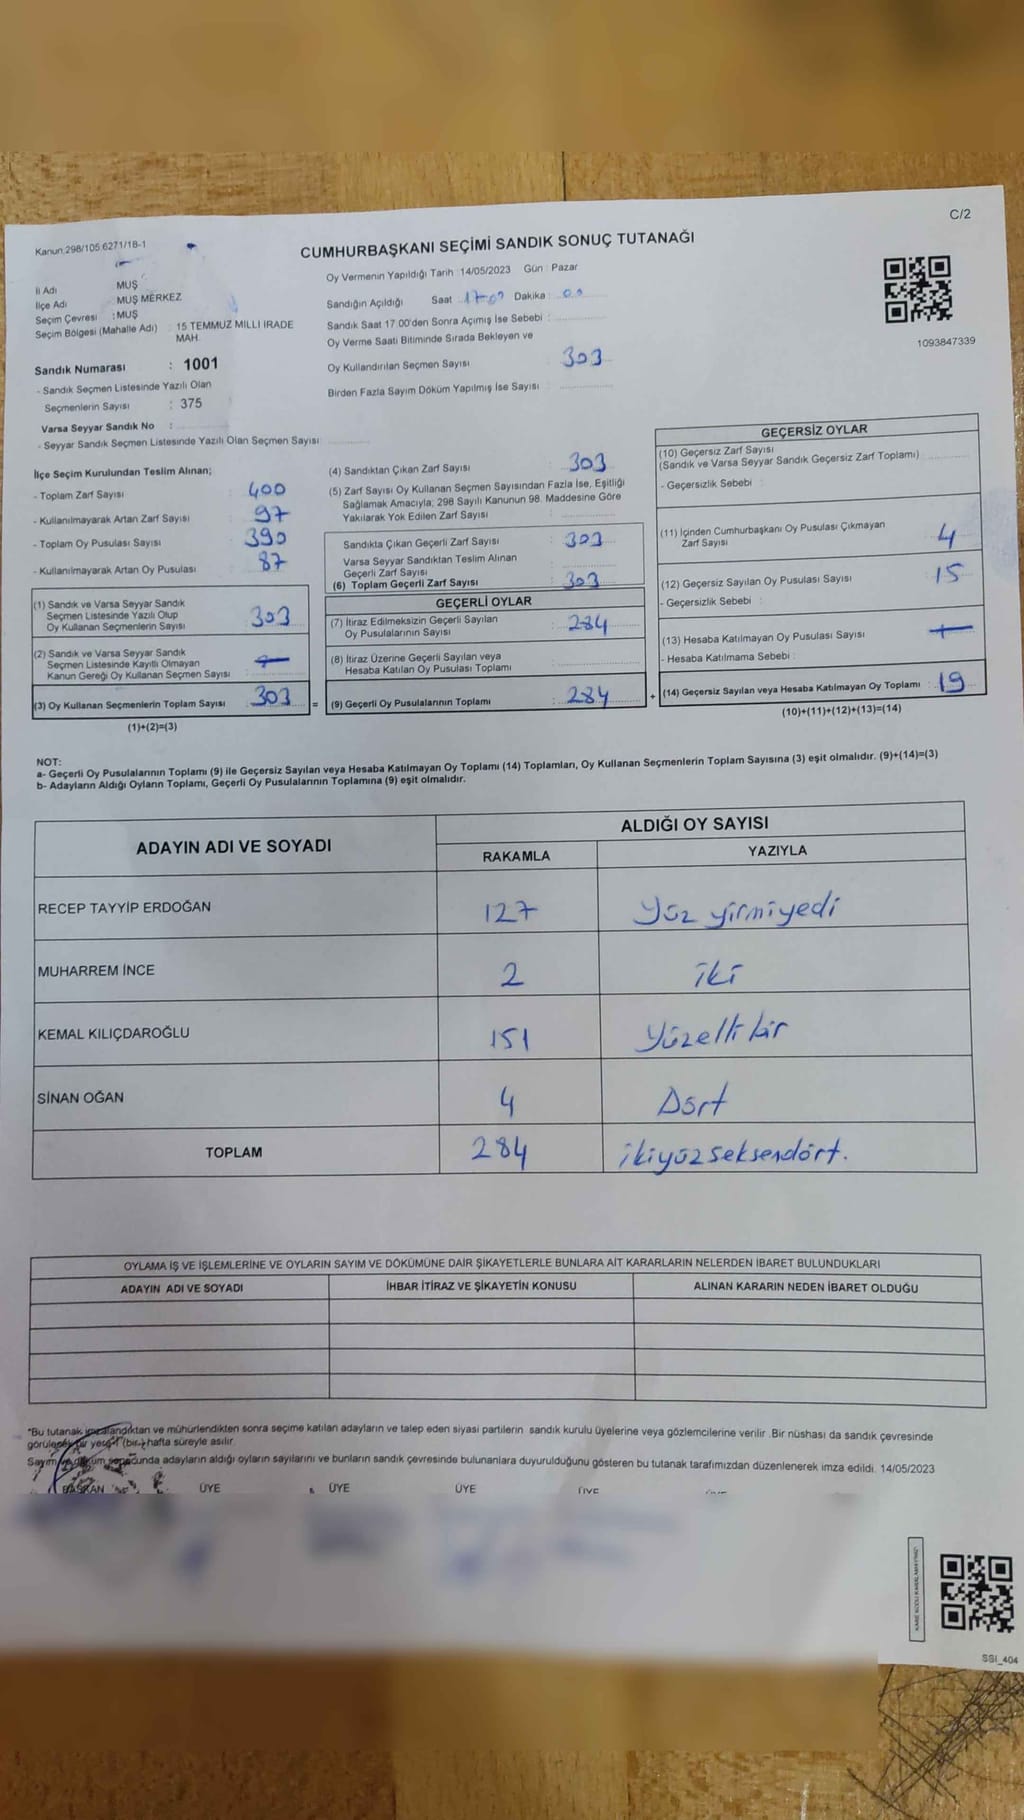 C/2
Kanun 298/105 6271/18-1
CUMHURBAŞKANI SEÇİMİ SANDIK SONUÇ TUTANAĞI
İl Adı MUŞ
İlçe Adı MUŞ MERKEZ
Seçim Çevresi : MUŞ
Seçim Bölgesi (Mahalle Adı) : 15 TEMMUZ MİLLİ İRADE
MAH.
Sandık Numarası : 1001
- Sandık Seçmen Listesinde Yazılı Olan
Seçmenlerin Sayısı : 375
Varsa Seyyar Sandık No :
- Seyyar Sandık Seçmen Listesinde Yazılı Olan Seçmen Sayısı:
Oy Vermenin Yapıldığı Tarih : 14/05/2023 Gün : Pazar
Sandığın Açıldığı Saat 17:00 Dakika : 00
Sandık Saat 17.00'den Sonra Açımış İse Sebebi :
Oy Verme Saati Bitiminde Sırada Bekleyen ve
Oy Kullandırılan Seçmen Sayısı 303
Birden Fazla Sayım Döküm Yapılmış İse Sayısı :
1093847339
İlçe Seçim Kurulundan Teslim Alınan;
- Toplam Zarf Sayısı : 400
- Kullanılmayarak Artan Zarf Sayısı : 97
- Toplam Oy Pusulası Sayısı : 390
- Kullanılmayarak Artan Oy Pusulası : 87
(1) Sandık ve Varsa Seyyar Sandık
Seçmen Listesinde Yazılı Olup
Oy Kullanan Seçmenlerin Sayısı : 303
(2) Sandık ve Varsa Seyyar Sandık
Seçmen Listesinde Kayıtlı Olmayan
Kanun Gereği Oy Kullanan Seçmen Sayısı :
(3) Oy Kullanan Seçmenlerin Toplam Sayısı : 303 =
(1)+(2)=(3)
(4) Sandıktan Çıkan Zarf Sayısı : 303
(5) Zarf Sayısı Oy Kullanan Seçmen Sayısından Fazla İse, Eşitliği
Sağlamak Amacıyla; 298 Sayılı Kanunun 98. Maddesine Göre
Yakılarak Yok Edilen Zarf Sayısı :
Sandıkta Çıkan Geçerli Zarf Sayısı : 303
Varsa Seyyar Sandıktan Teslim Alınan
Geçerli Zarf Sayısı :
(6) Toplam Geçerli Zarf Sayısı : 303
GEÇERLİ OYLAR
(7) İtiraz Edilmeksizin Geçerli Sayılan
Oy Pusulalarının Sayısı : 284
(8) İtiraz Üzerine Geçerli Sayılan veya
Hesaba Katılan Oy Pusulası Toplamı :
(9) Geçerli Oy Pusulalarının Toplamı : 284 +
GEÇERSİZ OYLAR
(10) Geçersiz Zarf Sayısı
(Sandık ve Varsa Seyyar Sandık Geçersiz Zarf Toplamı)
- Geçersizlik Sebebi :
(11) İçinden Cumhurbaşkanı Oy Pusulası Çıkmayan
Zarf Sayısı : 4
(12) Geçersiz Sayılan Oy Pusulası Sayısı : 15
- Geçersizlik Sebebi :
(13) Hesaba Katılmayan Oy Pusulası Sayısı :
- Hesaba Katılmama Sebebi :
(14) Geçersiz Sayılan veya Hesaba Katılmayan Oy Toplamı : 19
(10)+(11)+(12)+(13)=(14)
NOT:
a- Geçerli Oy Pusulalarının Toplamı (9) ile Geçersiz Sayılan veya Hesaba Katılmayan Oy Toplamı (14) Toplamları, Oy Kullanan Seçmenlerin Toplam Sayısına (3) eşit olmalıdır. (9)+(14)=(3)
b- Adayların Aldığı Oyların Toplamı, Geçerli Oy Pusulalarının Toplamına (9) eşit olmalıdır.
ADAYIN ADI VE SOYADI ALDIĞI OY SAYISI
RAKAMLA YAZIYLA
RECEP TAYYİP ERDOĞAN 127 Yüz yirmiyedi
MUHARREM İNCE 2 iki
KEMAL KILIÇDAROĞLU 151 Yüzelli bir
SİNAN OĞAN 4 Dört
TOPLAM 284 ikiyüz seksendört.
OYLAMA İŞ VE İŞLEMLERİNE VE OYLARIN SAYIM VE DÖKÜMÜNE DAİR ŞİKAYETLERLE BUNLARA AİT KARARLARIN NELERDEN İBARET BULUNDUKLARI
ADAYIN ADI VE SOYADI İHBAR İTİRAZ VE ŞİKAYETİN KONUSU ALINAN KARARIN NEDEN İBARET OLDUĞU
*Bu tutanak imzalandıktan ve mühürlendikten sonra seçime katılan adayların ve talep eden siyasi partilerin sandık kurulu üyelerine veya gözlemcilerine verilir .Bir nüshası da sandık çevresinde
görülecek bir yere 1 (bir) hafta süreyle asılır.
Sayım ve döküm sonucunda adayların aldığı oyların sayılarını ve bunların sandık çevresinde bulunanlara duyurulduğunu gösteren bu tutanak tarafımızdan düzenlenerek imza edildi. 14/05/2023
BAŞKAN ÜYE ÜYE ÜYE ÜYE
SSI_404